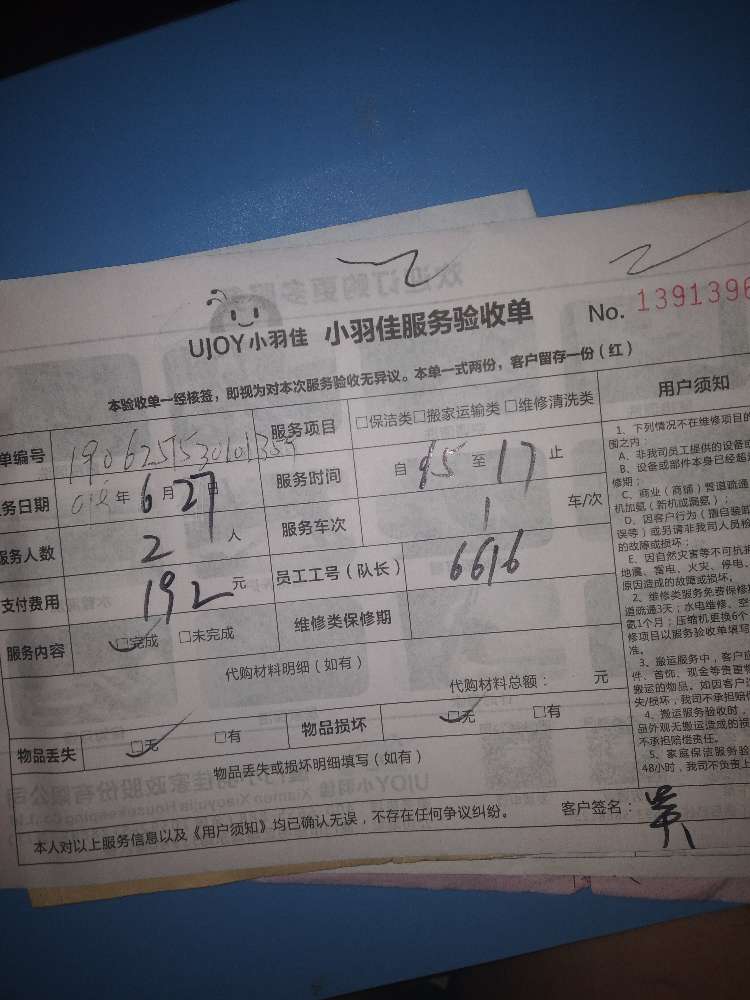 UJOY小羽佳 小羽佳服务验收单 No. 1391396
本验收单一经核签，即视为对本次服务验收无异议。本单一式两份，客户留存一份（红）
单编号 服务项目 □保洁类□搬家运输类□维修清洗类
务日期 年 6 月 27 服务时间 自 至 17 止
服务人数 2 人 服务车次 1 车/次
支付费用 192 元 员工工号（队长） 6616
服务内容 □完成 □未完成 维修类保修期
代购材料明细（如有）
代购材料总额： 元
物品丢失 □无 □有 物品损坏 □无 □有
物品丢失或损坏明细填写（如有）
本人对以上服务信息以及《用户须知》均已确认无误，不存在任何争议纠纷。 客户签名：
用户须知
1、下列情况不在维修项目的
围之内：
A、非我司员工提供的设备或
B、设备或部件本身已经超过
修期；
C、商业（商铺）管道疏通
机加氨（新机或漏氨）；
D、因客户行为（擅自装卸
误等）或另请非我司人员检
的故障或损坏；
E、因自然灾害等不可抗拒
地震、雷电、火灾、停电、
原因造成的故障或损坏。
2、维修类服务免费保修期
道疏通3天；水电维修、空
氨1个月；压缩机更换6个
修项目以服务验收单填写
准。
3、搬运服务中，客户应
件、首饰、现金等贵重物
搬运的物品。如因客户
失/损坏，我司不承担赔偿
4、搬运服务验收时，
品外观无搬运造成的损
不承担赔偿责任。
5、家庭保洁服务验
48小时，我司不负责上